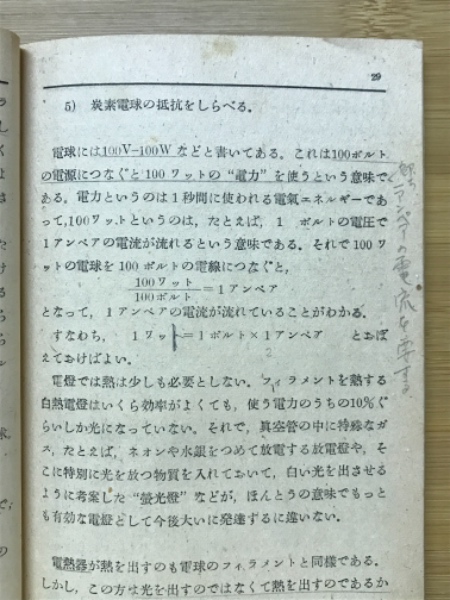 29
5) 炭素電球の抵抗をしらべる.
電球には100V-100W などと書いてある. これは100ボルト
の電源につなぐと 100 ワットの “電力” を使うという意味で
ある. 電力というのは1秒間に使われる電氣エネルギーであ
って,100ワットというのは, たとえば, 1 ボルトの電圧で
1アンペアの電流が流れるという意味である. それで100ワ
ットの電球を100ボルトの電線につなぐと,
100ワット
100ボルト
=1アンペア
となって, 1アンペアの電流が流れていることがわかる.
すなわち, 1ワット=1ボルト×1アンペア とおぼ
えておけばよい.
電燈では熱は少しも必要としない. フィラメントを熱する
白熱電燈はいくら効率がよくても, 使う電力のうちの10%ぐ
らいしか光になっていない. それで, 真空管の中に特殊なガ
ス, たとえば, ネオンや水銀をつめて放電する放電燈や, そ
こに特別に光を放つ物質を入れておいて, 白い光を出させる
ように考案した “螢光燈” などが, ほんとうの意味でもっと
も有効な電燈として今後大いに発達するに違いない.
電熱器が熱を出すのも電球のフィラメントと同様である.
しかし, この方は光を出すのではなくて熱を出すのであるか
アンペアの電流を要する